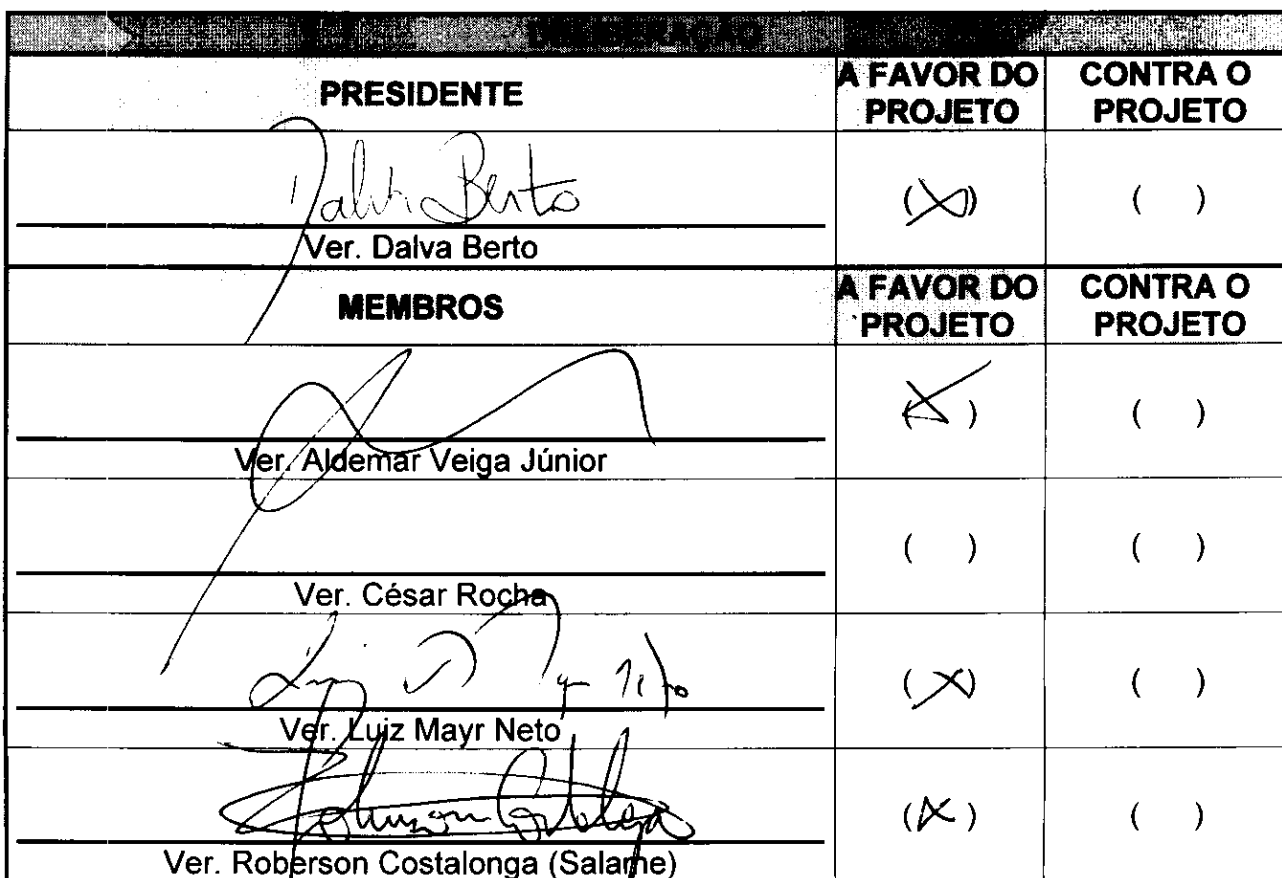 DELIBERAÇÃO
PRESIDENTE
A FAVOR DO PROJETO
CONTRA O PROJETO
Dalva Berto
(X)
( )
Ver. Dalva Berto
MEMBROS
A FAVOR DO PROJETO
CONTRA O PROJETO
(X)
( )
Ver. Aldemar Veiga Júnior
( )
( )
Ver. César Rocha
(X)
( )
Ver. Luiz Mayr Neto
(X)
( )
Ver. Roberson Costalonga (Salame)